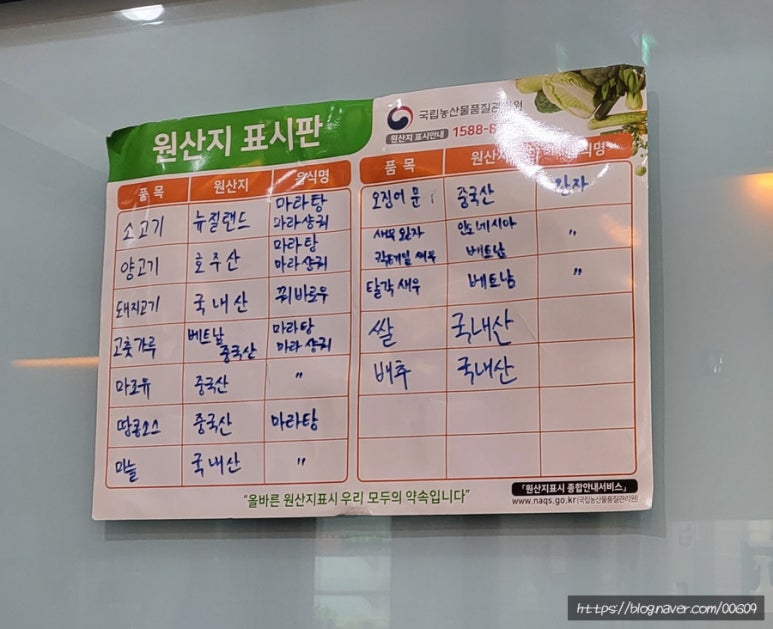 원산지 표시판
국립농산물품질관리원
원산지 표시안내 1588-8
품 목 원산지 음식명
소고기 뉴질랜드 마라탕
마라샹궈
양고기 호주산 마라탕
마라샹궈
돼지고기 국내산 꿔바로우
고춧가루 베트남 마라탕
중국산 마라샹궈
마조유 중국산 〃
땅콩소스 중국산 마라탕
마늘 국내산 〃
품 목 원산지 음식명
오징어 중국산 완자
새우완자 인도네시아 〃
칵테일새우 베트남
탈각새우 베트남 〃
쌀 국내산
배추 국내산
"올바른 원산지표시 우리 모두의 약속입니다"
「원산지표시 종합안내서비스」
www.naqs.go.kr(국립농산물품질관리원)
https://blog.naver.com/00609